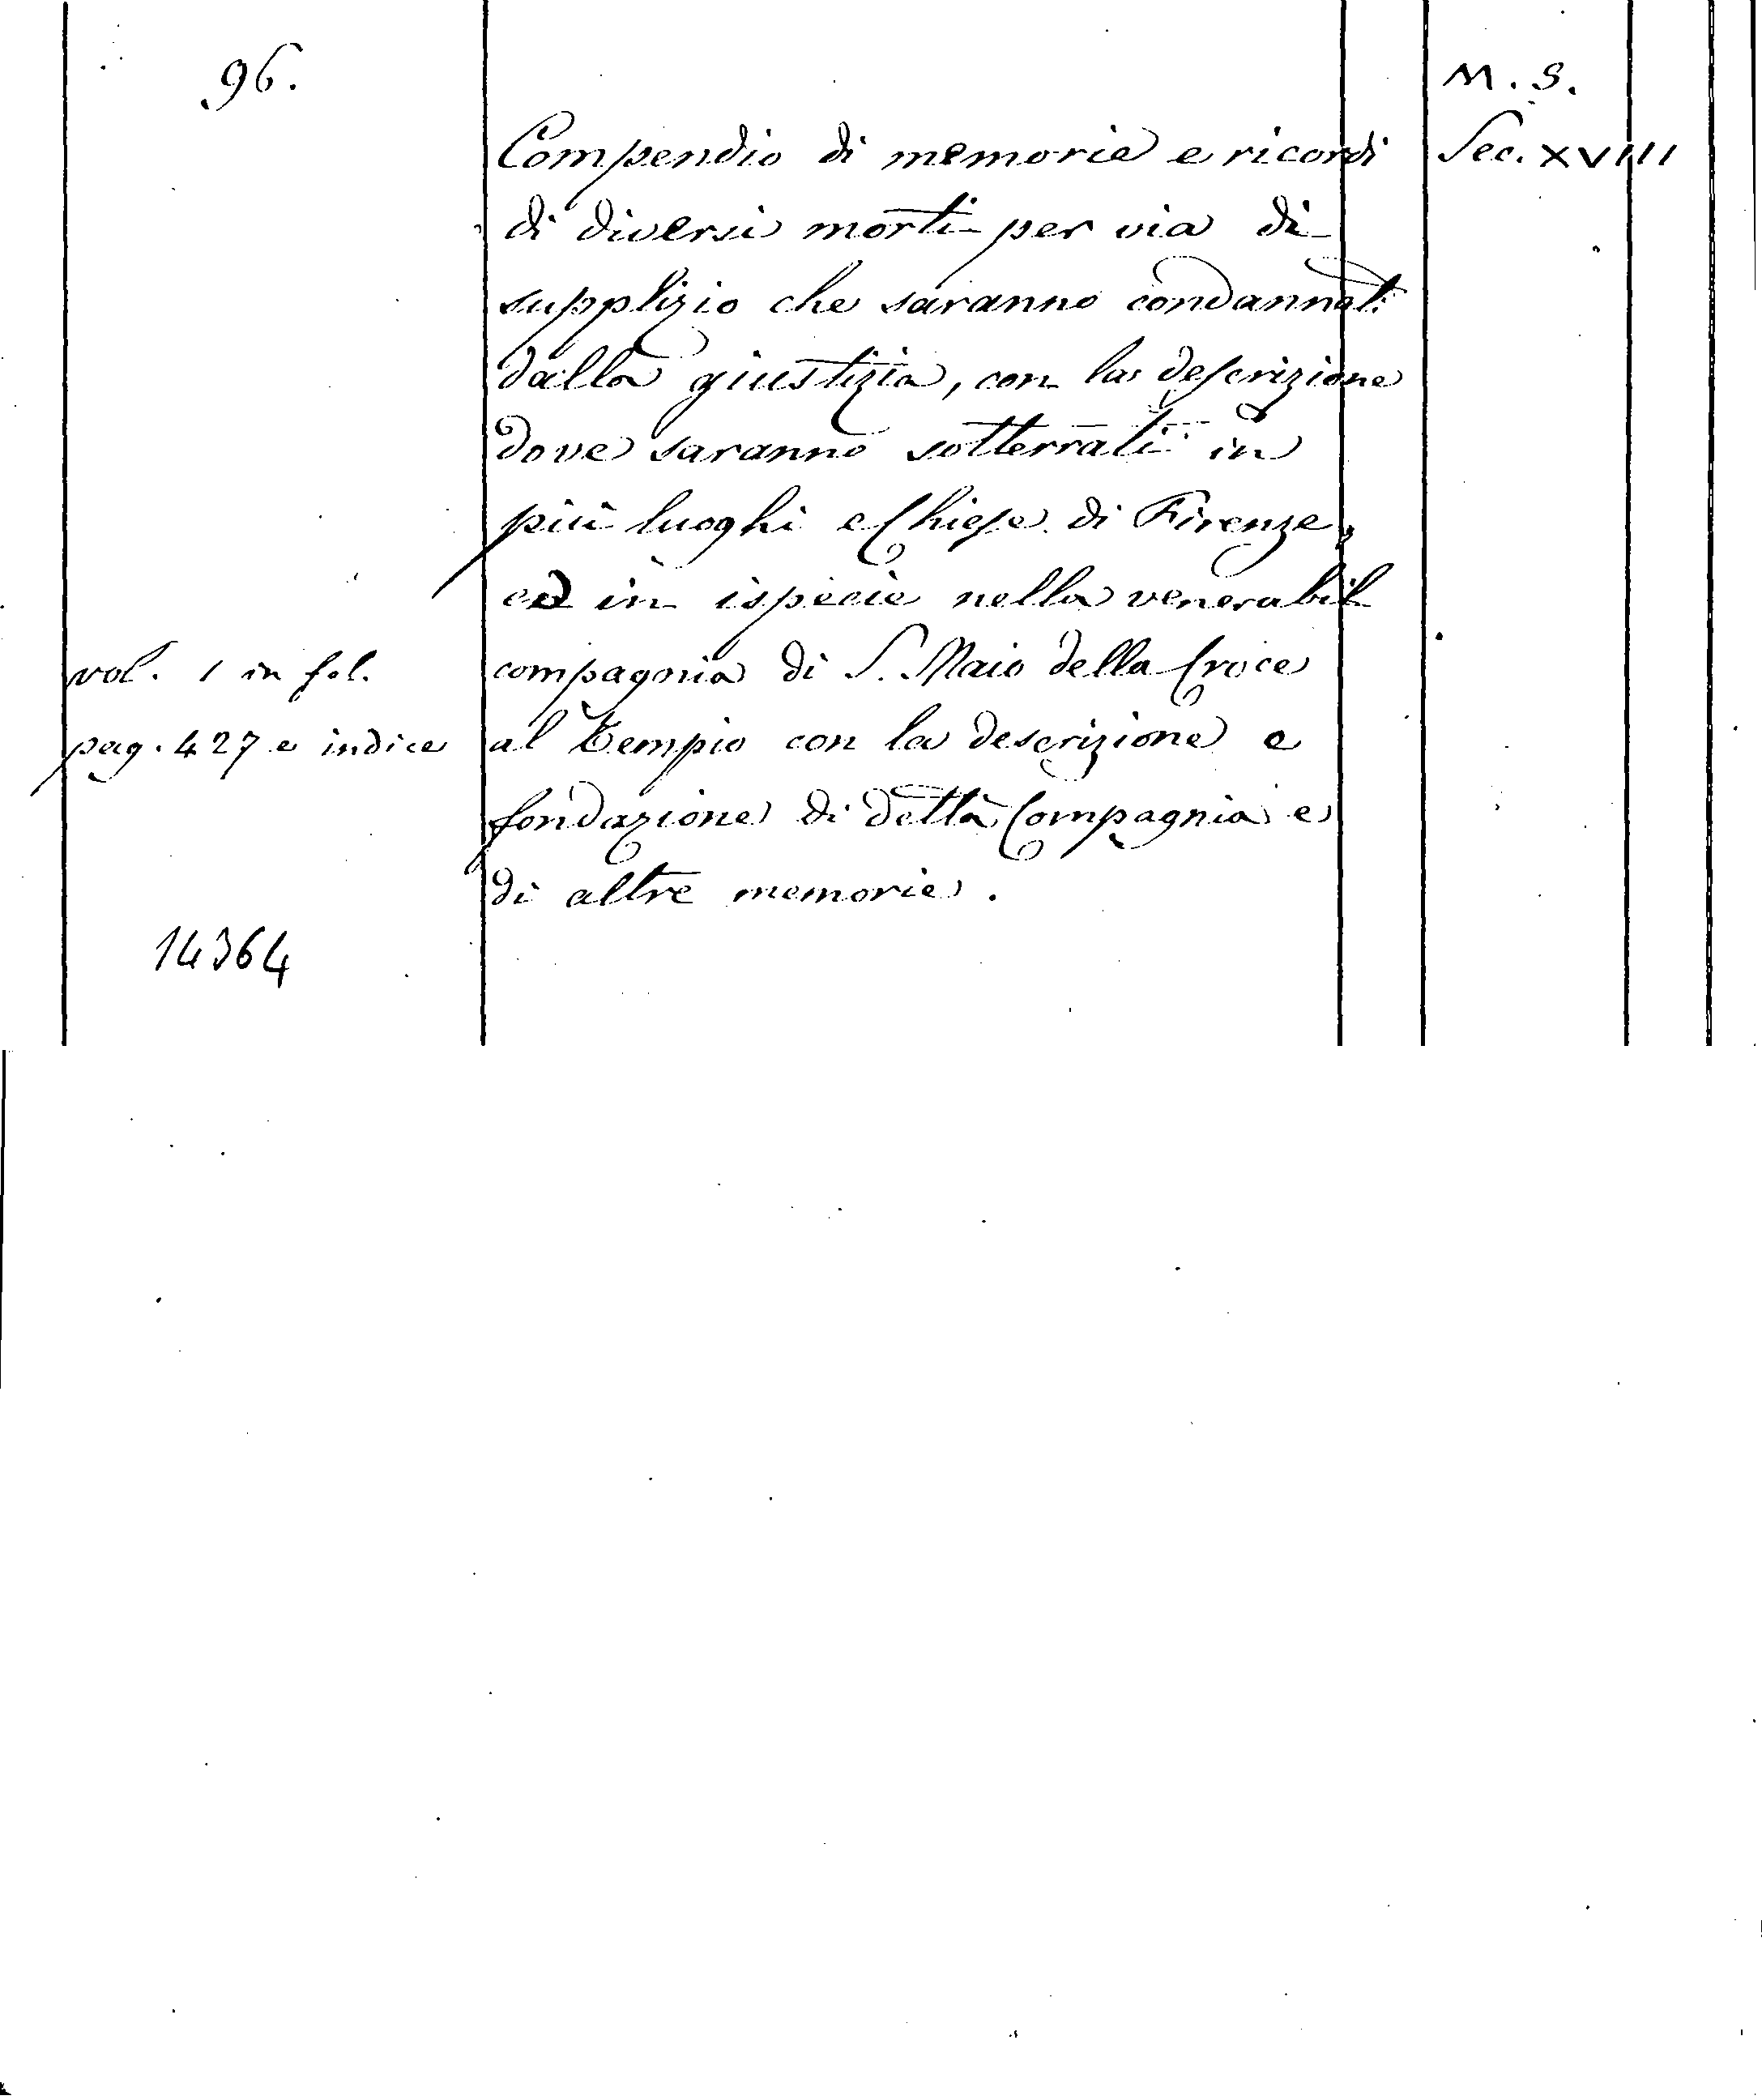 96.
M. S.
Compendio di memorie e ricordi
Sec. XVIII
di diversi morti per via di
supplizio che saranno condannati
dalla giustizia, con la descrizione
dove saranno sotterrati in
più luoghi e Chiese di Firenze,
ed in ispecie nella venerabil
vol. 1 in fol.
compagnia di S. Maio della Croce
pag. 427 e indice
al Tempio con la descrizione e
fondazione di detta Compagnia e
di altre memorie.
14364